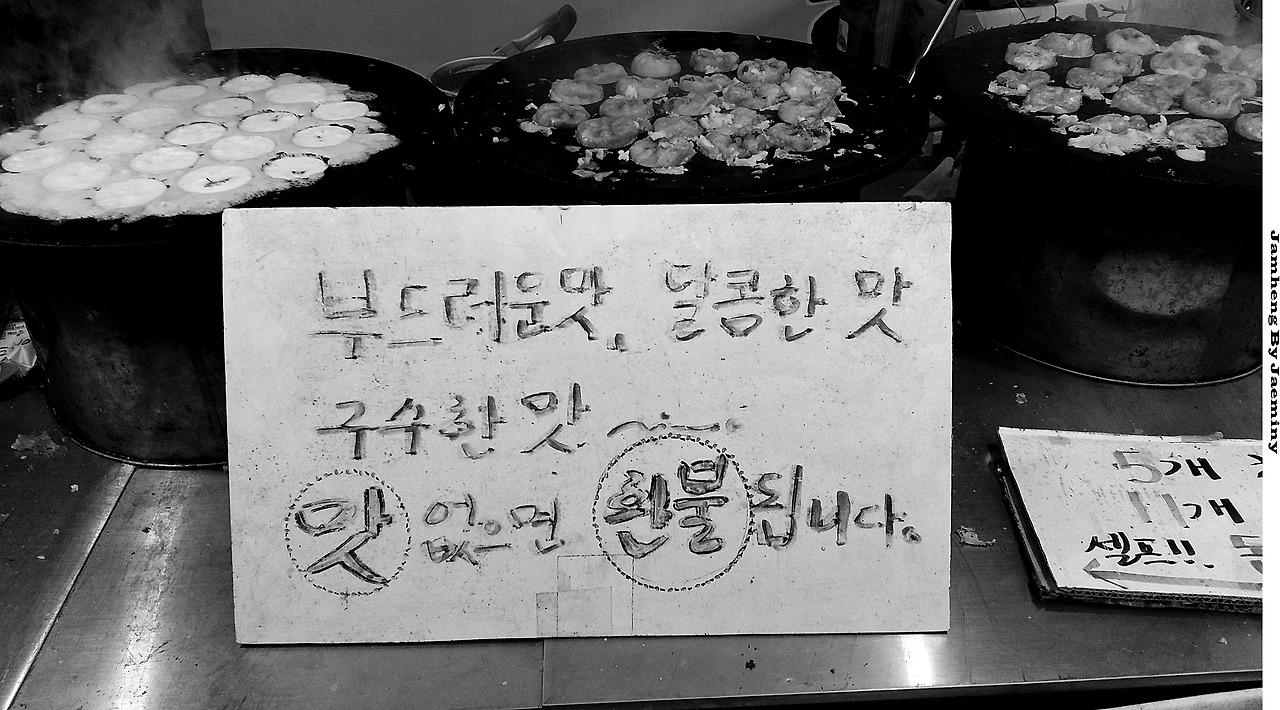 부드러운맛, 달콤한 맛
구수한 맛
맛 없으면 환불 됩니다.
5개
11개
셀프!!
Jamheng By Jaeminy